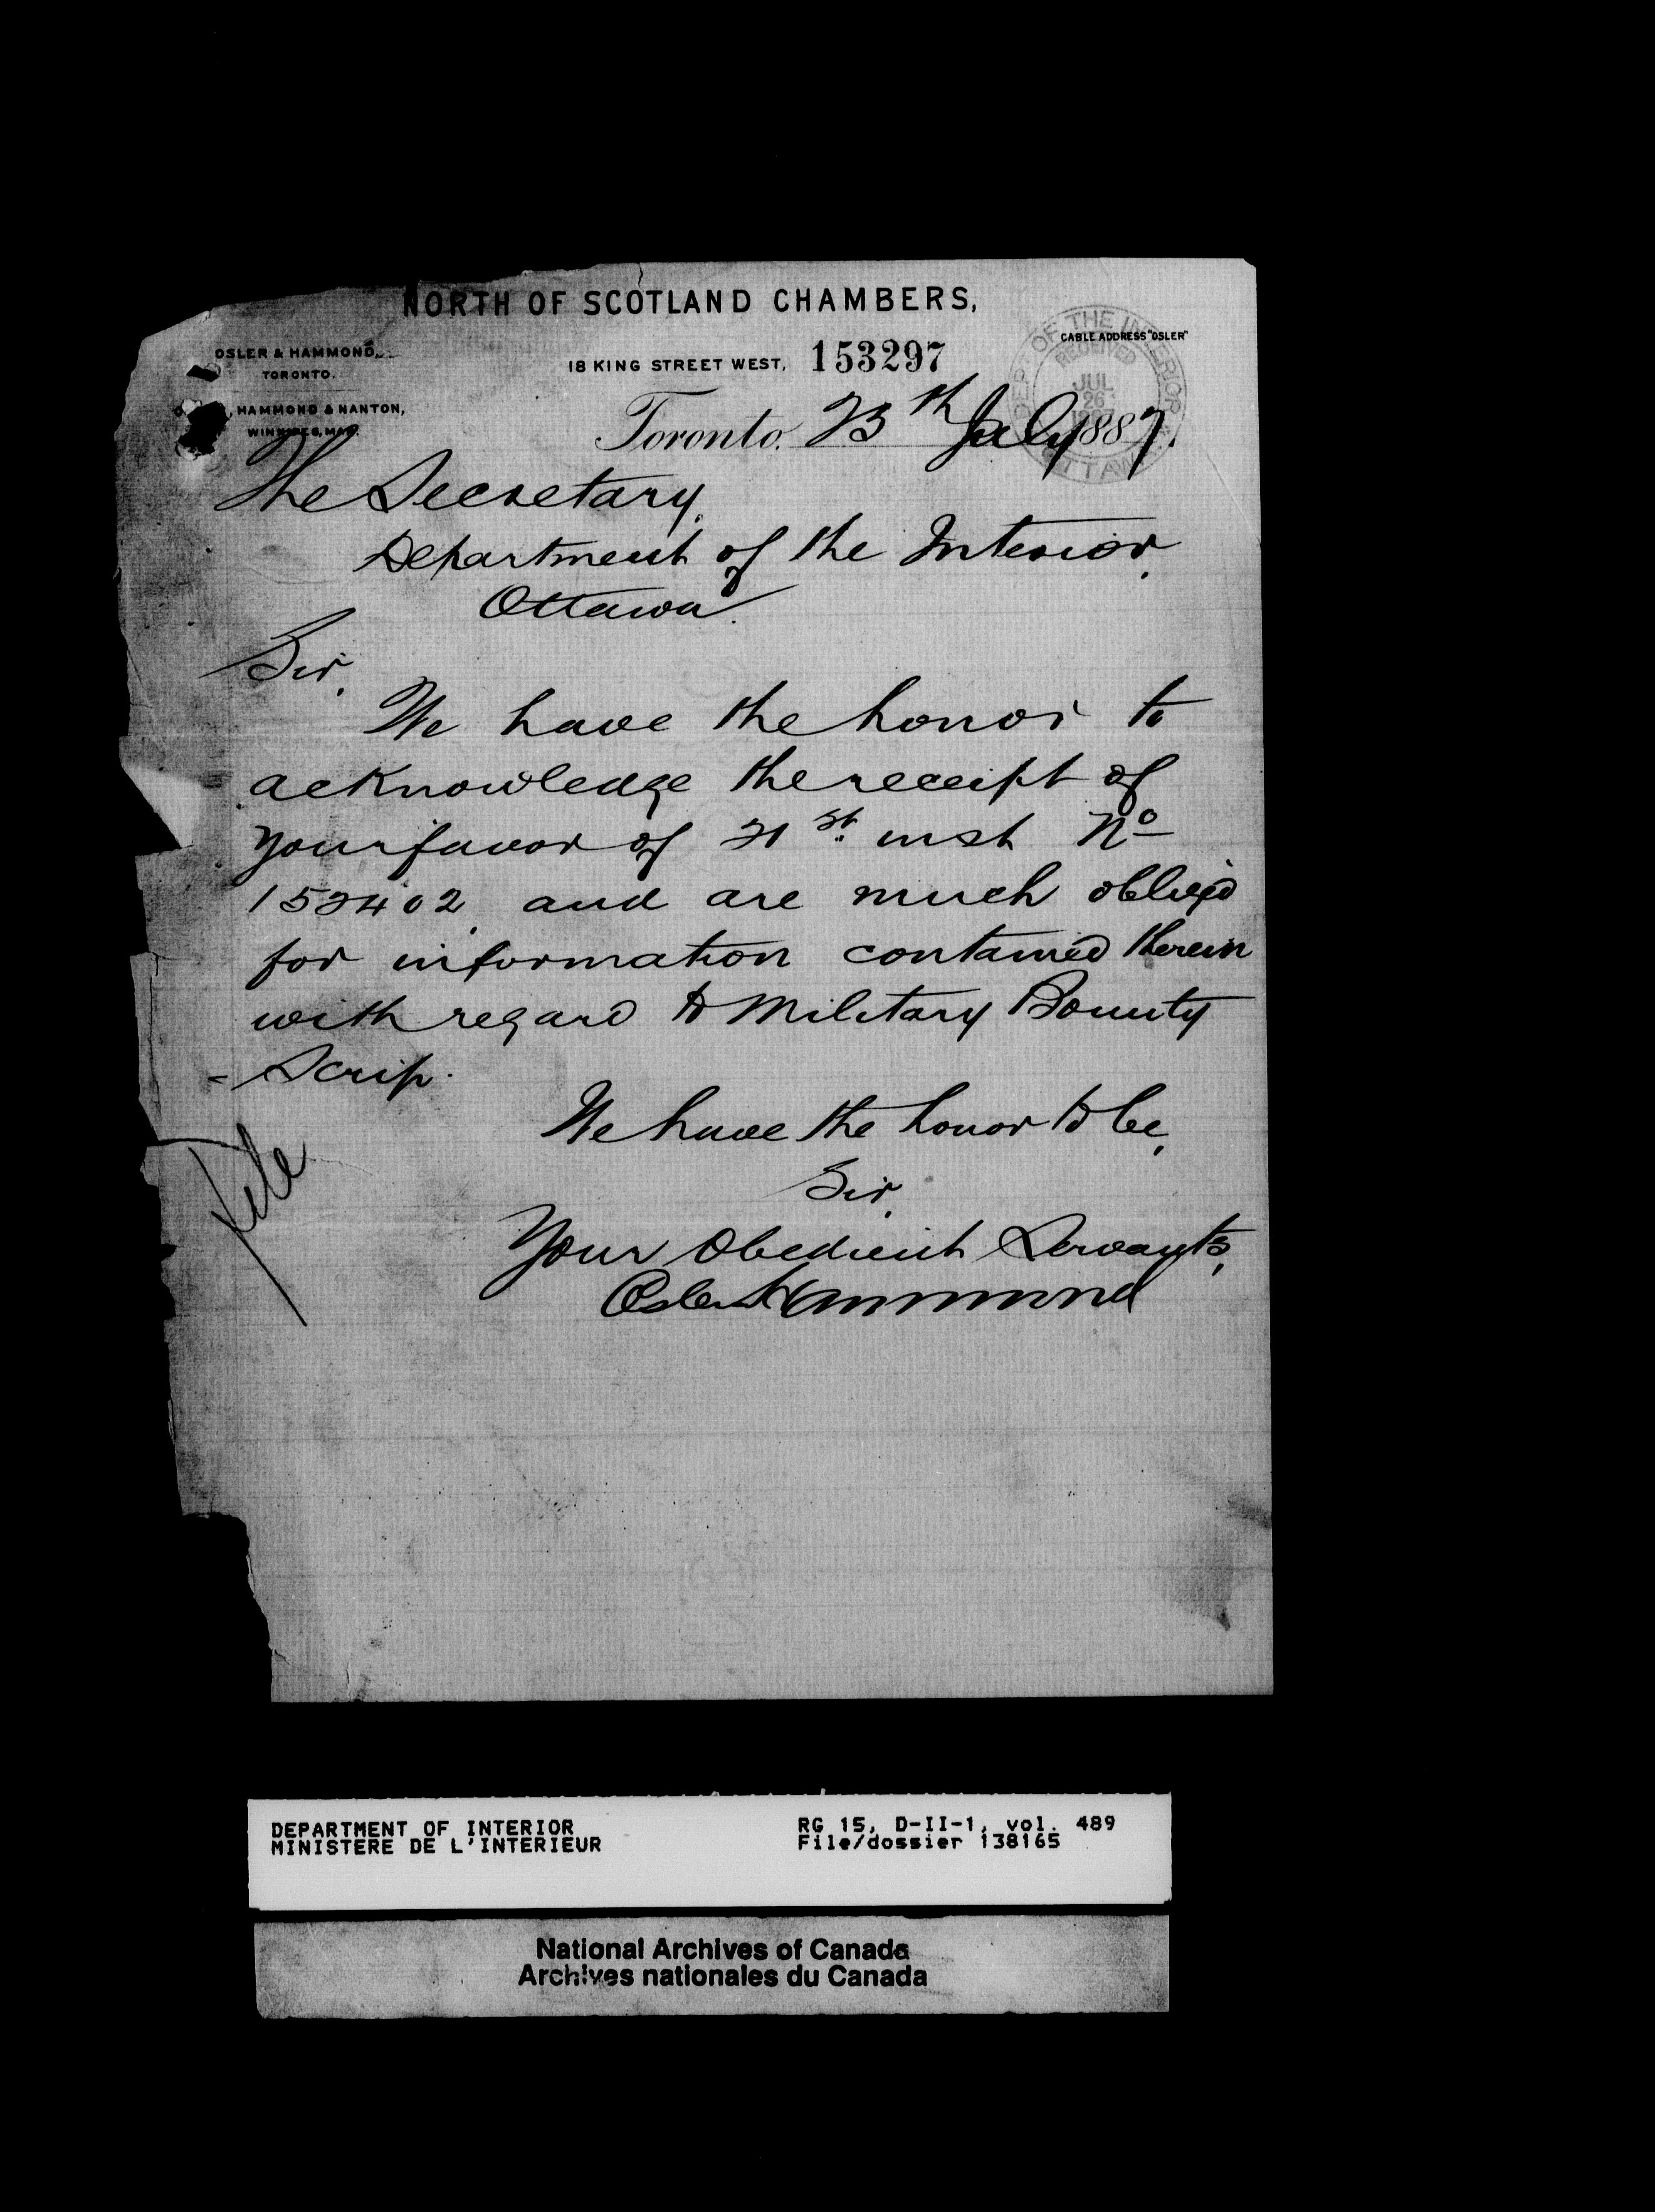 NORTH OF SCOTLAND CHAMBERS,
CABLE ADDRESS "OSLER"
OSLER & HAMMOND,
TORONTO.
18 KING STREET WEST, 153297
HAMMOND & NANTON,
WINNIPEG, MAN.
DEP. OF THE INTERIOR
RECEIVED
JUL
26
1887
OTTAWA
Toronto. 23th July 1887.
The Secretary,
Department of the Interior,
Ottawa.
Sir,
We have the honor to
acknowledge the receipt of
your favor of 21st. inst No
152402, and are much obliged
for information contained therein
with regard to Military Bounty
- Scrip.
We have the honor to be,
Sir,
Your Obedient Servants,
Osler & Hammond
File
DEPARTMENT OF INTERIOR
MINISTERE DE L'INTERIEUR
RG 15, D-II-1, vol. 489
File/dossier 138165
National Archives of Canada
Archives nationales du Canada